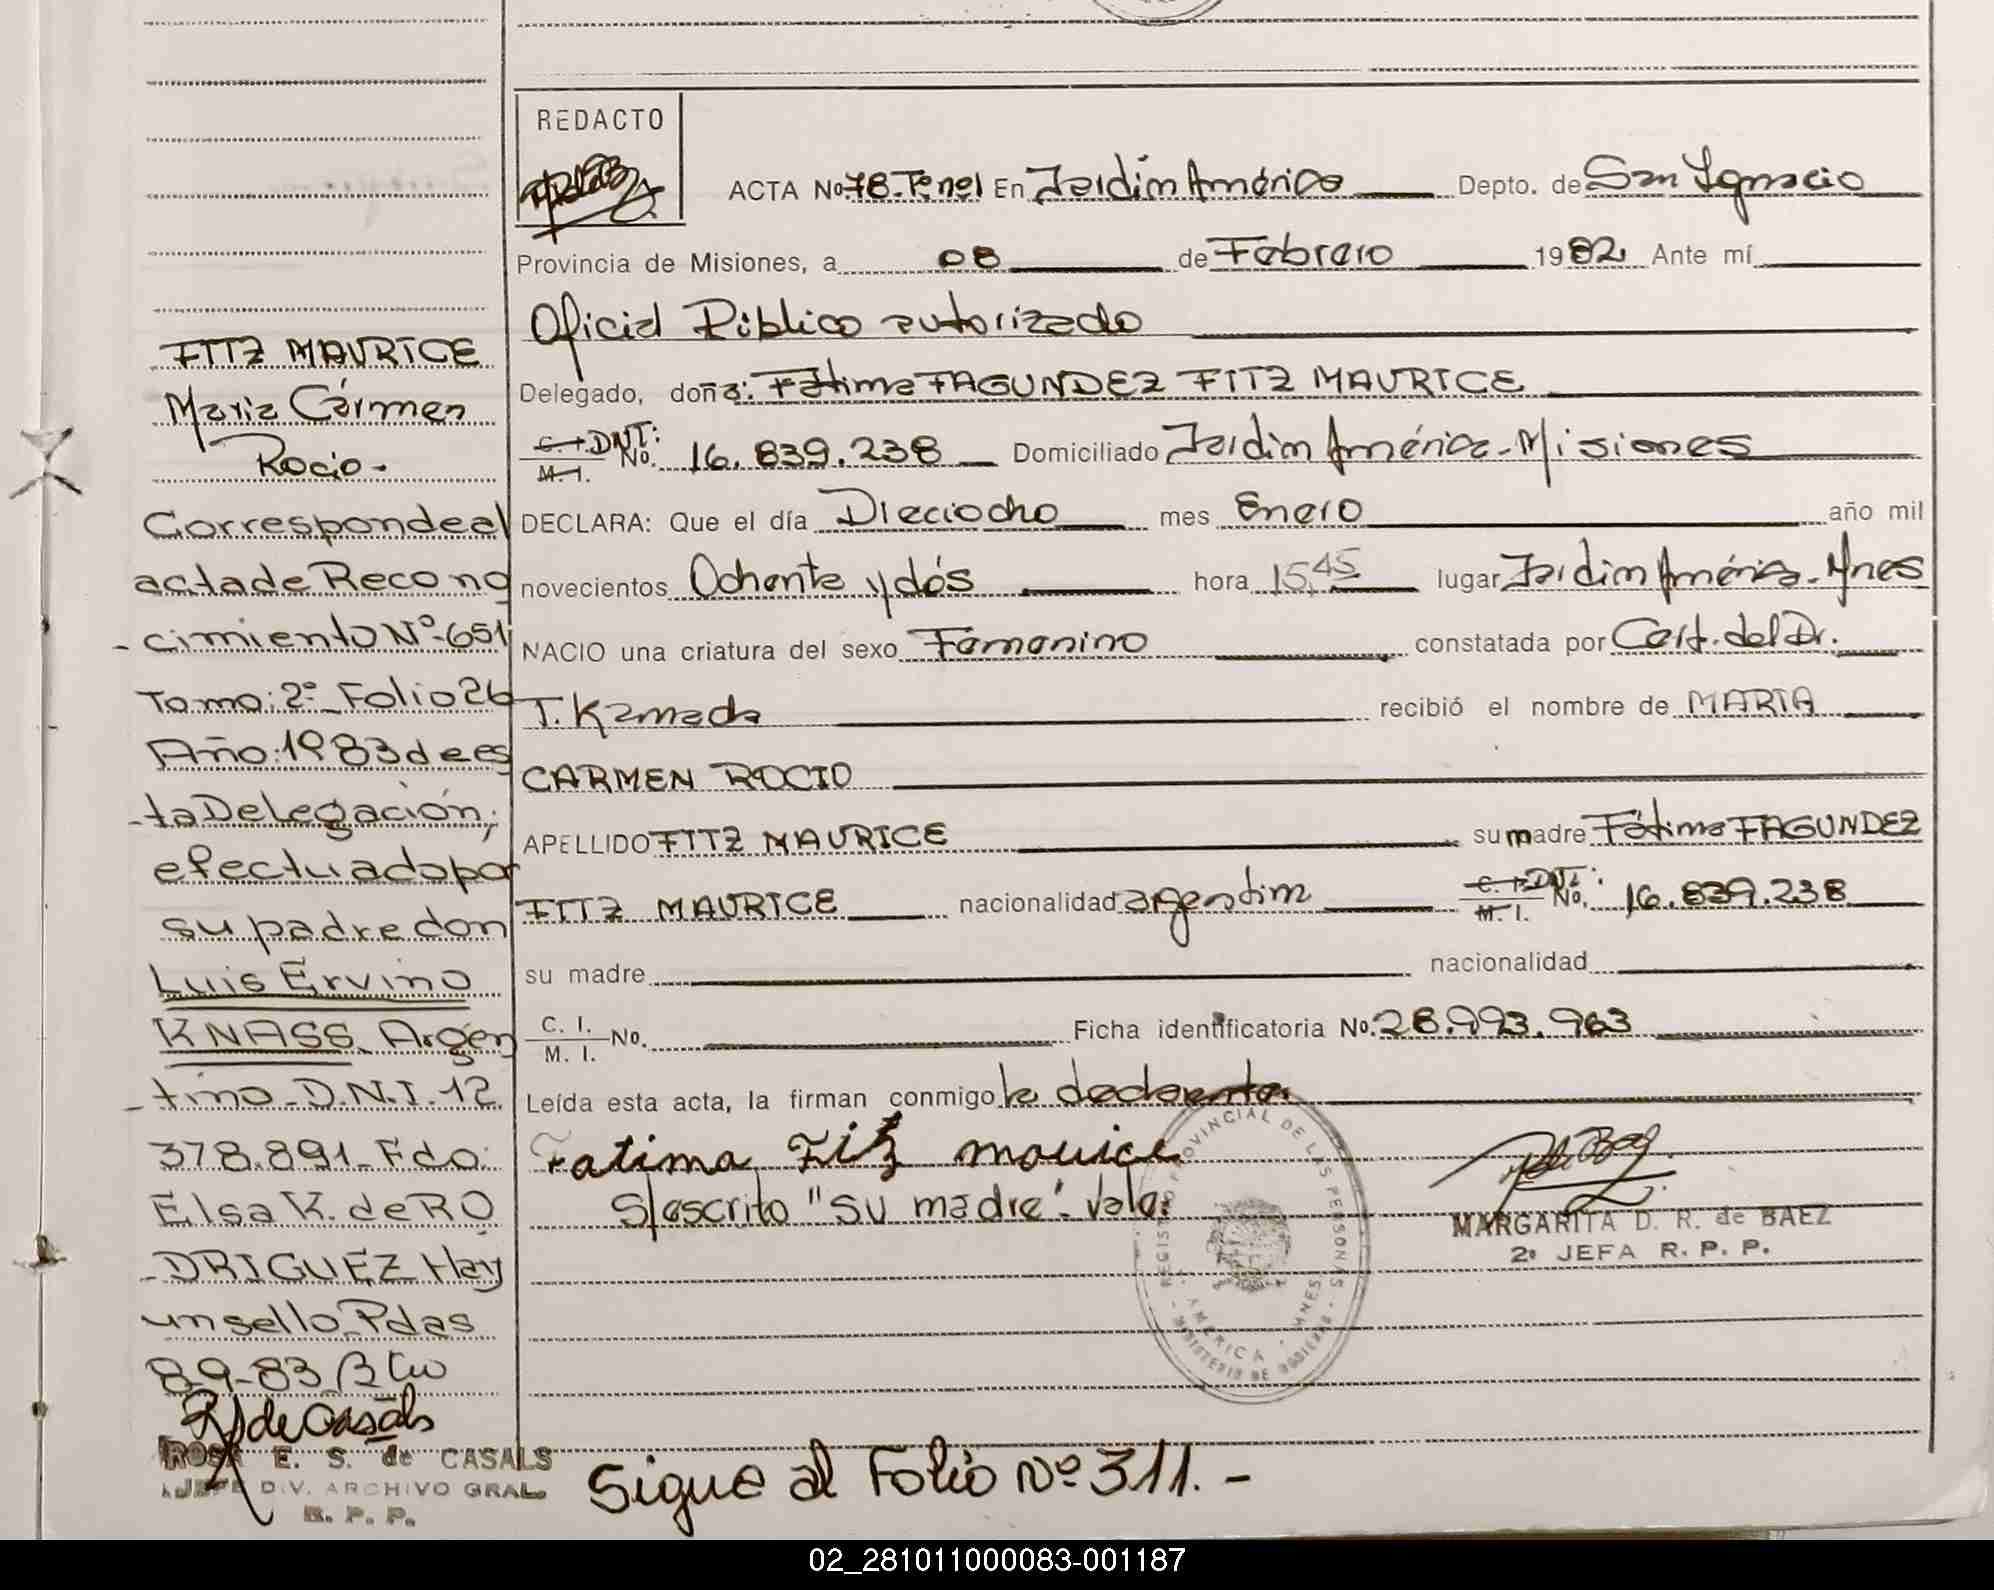 FITZ MAURICE
Maria Cármen
Rocio.-
Correspondeal
actade Recono
cimiento Nº-651
Tomo: 2º_Folio 26
Año: 1983 de es
ta Delegación,
efectuado por
su padre don
Luis Ervino
KNASS. Argen
tino_D.N.I. 12.
378.891_Fdo:
Elsa K. de RO
DRIGUEZ Hay
un sello_Pdas
8-9-83
R S de Casals
ROSA E. S. de CASALS
JEFE DIV. ARCHIVO GRAL.
R. P. P.
REDACTO
ACTA No 78-Tº nel En Jardim América Depto. de San Ignacio
Provincia de Misiones, a 08 de Febrero 1982 Ante mí
Oficial Público autorizado
Delegado, doña: Fátima FAGUNDEZ FITZ MAURICE
C. I. DNI:
M. I. No. 16.839.238 Domiciliado Jardim América-Misiones
DECLARA: Que el día Dieciocho mes Enero año mil
novecientos Ochenta y dós hora 15,45 lugar Jardim América-Mnes
NACIO una criatura del sexo Femenino constatada por Cert. del Dr.
T. Kamada recibió el nombre de MARIA
CARMEN ROCIO
APELLIDO FITZ MAURICE su madre Fátima FAGUNDEZ
FITZ MAURICE nacionalidad argentina C. I. DNI: M. I. No. 16.839.238
su madre nacionalidad
C. I.
M. I. No. Ficha identificatoria No. 28.993.963
Leída esta acta, la firman conmigo la declarante.
Fatima Fitz mouice
S/escrito "su madre". Vale.
MARGARITA D. R. de BAEZ
2º JEFA R. P. P.
REGISTRO PROVINCIAL DE LAS PERSONAS
AMERICA - MNES
MINISTERIO DE GOBIERNO
Sigue al Folio Nº 311.-
02_281011000083-001187